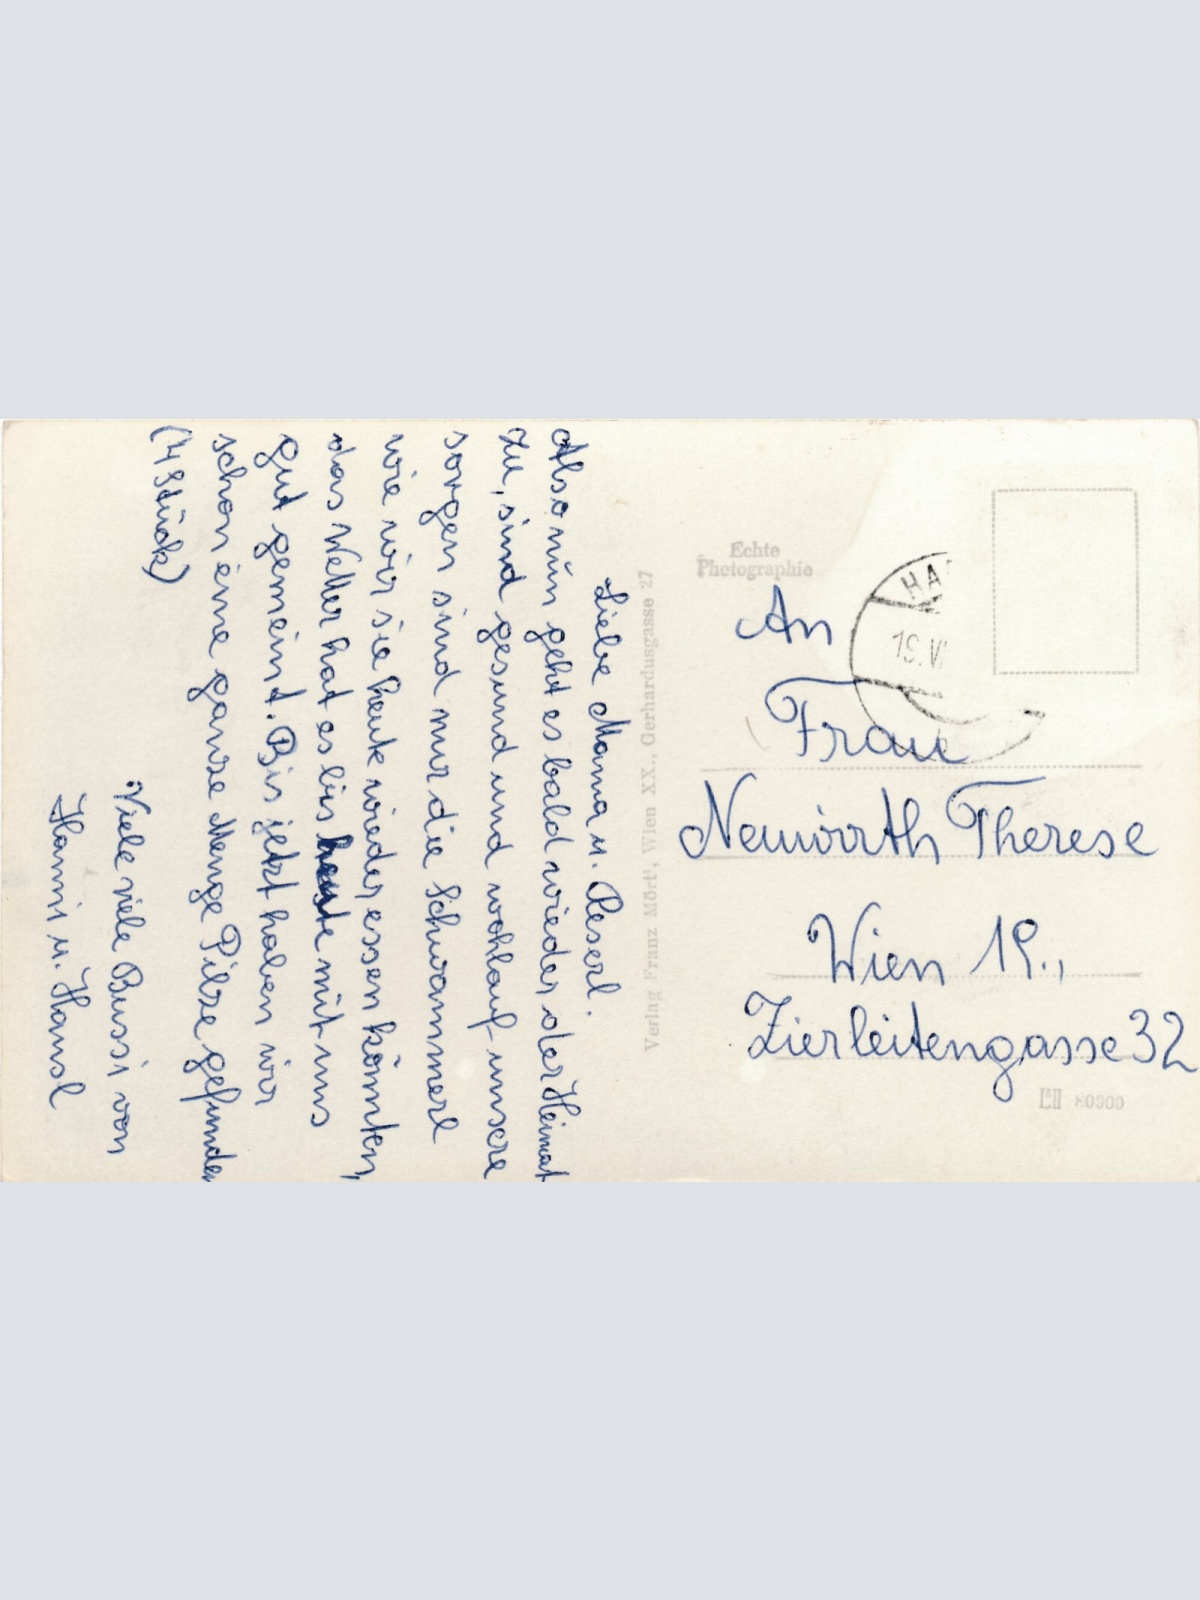 Liebe Mama u. Reserl.
Also nun geht es bald wieder der Heimat
zu, sind gesund und wohlauf unsere
sorgen sind nur die Schwammerl
wie wir sie heute wieder essen könnten,
das Wetter hat es bis heute mit uns
gut gemeint. Bis jetzt haben wir
schon eine ganze Menge Pilze gefunden
(4 Stück)
Viele viele Bussi von
Hanni u. Hansl
Verlag Franz Mörtl, Wien XX., Gerhardusgasse 27
Echte
Photographie
HA
19. VI
An
Frau
Neuwirth Therese
Wien 19.,
Zierleitengasse 32